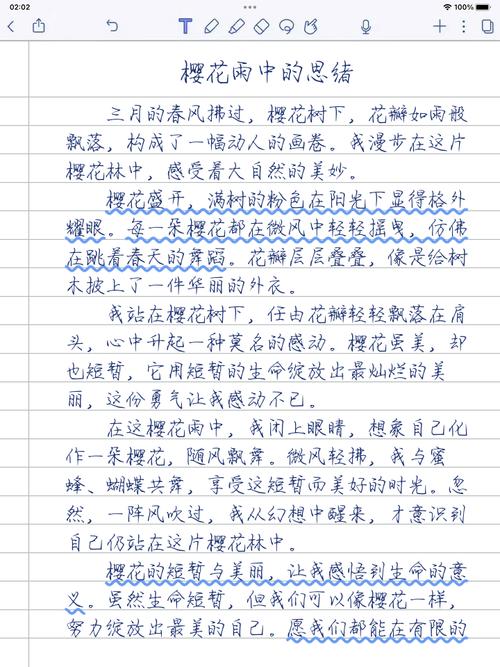 02:02
100%
樱花雨中的思绪
三月的春风拂过，樱花树下，花瓣如雨般
飘落，构成了一幅动人的画卷。我漫步在这片
樱花林中，感受着大自然的美妙。
樱花盛开，满树的粉色在阳光下显得格外
耀眼。每一朵樱花都在微风中轻轻摇曳，仿佛
在跳着春天的舞蹈。花瓣层层叠叠，像是给树
木披上了一件华丽的外衣。
我站在樱花树下，任由花瓣轻轻飘落在肩
头，心中升起一种莫名的感动。樱花虽美，却
也短暂，它用短暂的生命绽放出最灿烂的美
丽，这份勇气让我感动不已。
在这樱花雨中，我闭上眼睛，想象自己化
作一朵樱花，随风飘舞。微风轻拂，我与蜜
蜂、蝴蝶共舞，享受这短暂而美好的时光。忽
然，一阵风吹过，我从幻想中醒来，才意识到
自己仍站在这片樱花林中。
樱花的短暂与美丽，让我感悟到生命的意
义。虽然生命短暂，但我们可以像樱花一样，
努力绽放出最美的自己。愿我们都能在有限的